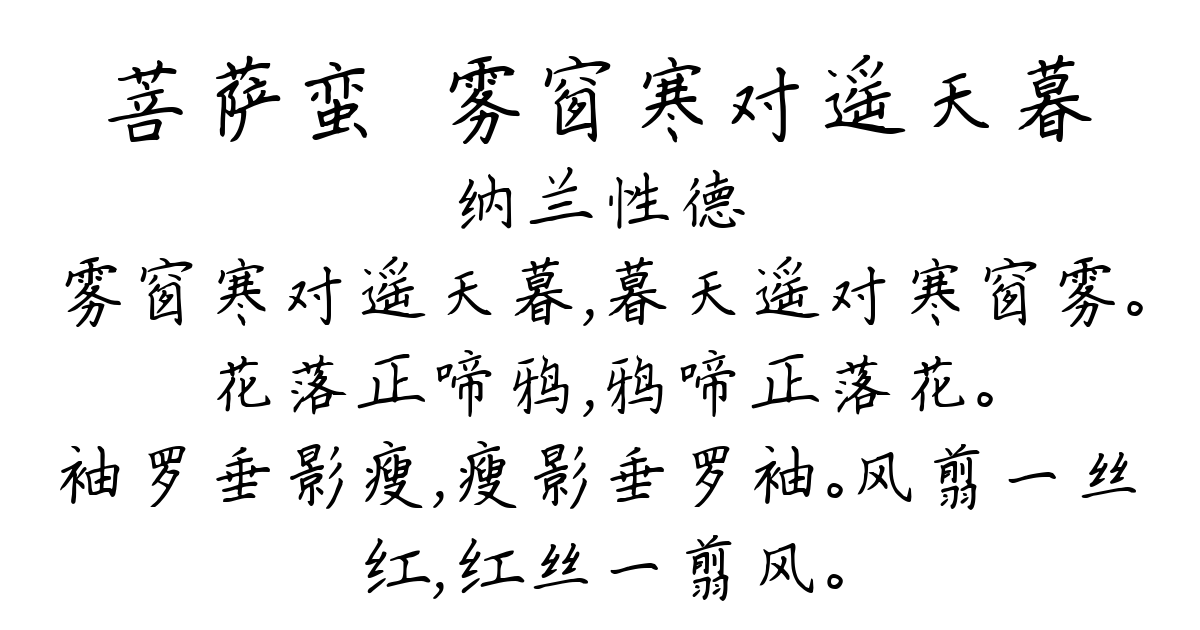 菩萨蛮 雾窗寒对遥天暮
纳兰性德
雾窗寒对遥天暮,暮天遥对寒窗雾。
花落正啼鸦,鸦啼正落花。
袖罗垂影瘦,瘦影垂罗袖。风剪一丝
红,红丝一剪风。